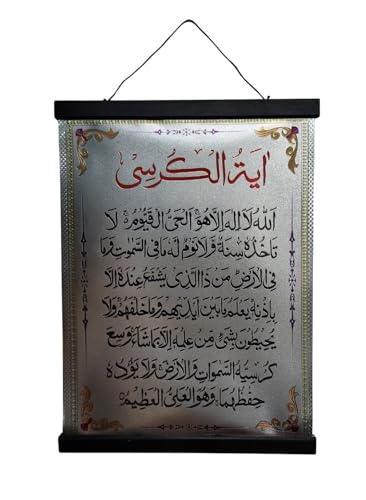 اٰيَةُ الْكُرْسِى
اَللّٰهُ لَا اِلٰهَ اِلَّا هُوَ ۚ اَلْحَىُّ الْقَيُّوْمُ ۚ لَا
تَاْخُذُهٗ سِنَةٌ وَّلَا نَوْمٌ ؕ لَهٗ مَا فِى السَّمٰوٰتِ وَمَا
فِى الْاَرْضِ ؕ مَنْ ذَا الَّذِىْ يَشْفَعُ عِنْدَهٗۤ اِلَّا
بِاِذْنِهٖ ؕ يَعْلَمُ مَا بَيْنَ اَيْدِيْهِمْ وَمَا خَلْفَهُمْ ۚ وَلَا
يُحِيْطُوْنَ بِشَىْءٍ مِّنْ عِلْمِهٖۤ اِلَّا بِمَا شَآءَ ۚ وَسِعَ
كُرْسِيُّهُ السَّمٰوٰتِ وَالْاَرْضَ ۚ وَلَا يَؤُدُهٗ
حِفْظُهُمَا ۚ وَهُوَ الْعَلِىُّ الْعَظِيْمُ